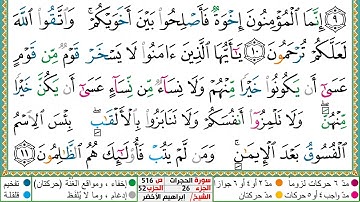 ٩ إِنَّمَا الْمُؤْمِنُونَ إِخْوَةٌ فَأَصْلِحُوا بَيْنَ أَخَوَيْكُمْ ۚ وَاتَّقُوا اللَّهَ
لَعَلَّكُمْ تُرْحَمُونَ ١٠ يَا أَيُّهَا الَّذِينَ ءَامَنُوا لَا يَسْخَرْ قَوْمٌ مِّن قَوْمٍ
عَسَىٰ أَن يَكُونُوا خَيْرًا مِّنْهُمْ وَلَا نِسَاءٌ مِّن نِّسَاءٍ عَسَىٰ أَن يَكُنَّ خَيْرًا
مِّنْهُنَّ ۖ وَلَا تَلْمِزُوا أَنفُسَكُمْ وَلَا تَنَابَزُوا بِالْأَلْقَابِ ۖ بِئْسَ الِاسْمُ
الْفُسُوقُ بَعْدَ الْإِيمَانِ ۚ وَمَن لَّمْ يَتُبْ فَأُولَٰئِكَ هُمُ الظَّالِمُونَ ١١
مدّ ٦ حركات لزوما مدّ ٢ أو ٤ أو ٦ جوازا سورة الحجرات ص 516 إخفاء، ومواقع الغُنَّة (حركتان) تفخيم
الجزء 26 الحزب 52
مدّ حركتان الشيخ/ إبراهيم الأخضر إدغام، وما لا يُلفظ قلقلة